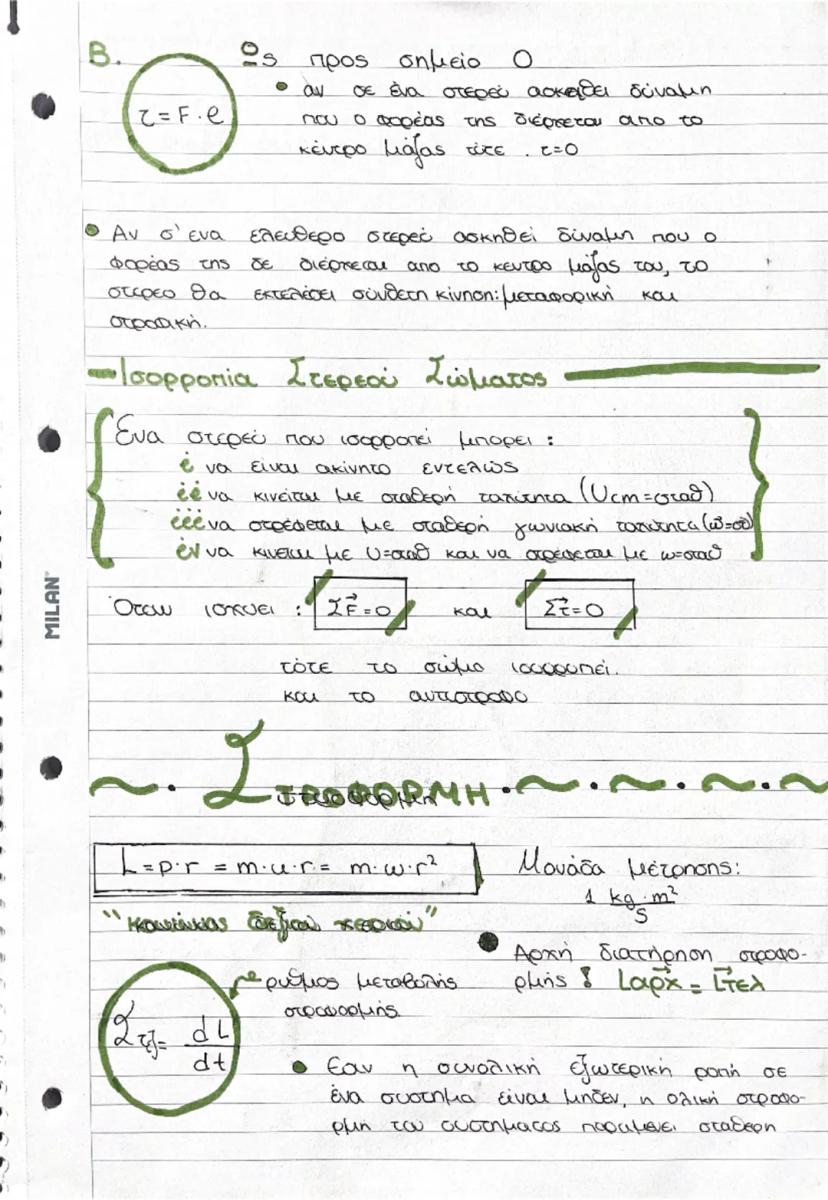 Β. Ως προς σημείο Ο
τ = F · l
• αν σε ένα στερεό ασκηθεί δύναμη
που ο φορέας της διέρχεται απο το
κέντρο μάζας τότε . τ=0
• Αν σ' ενα ελευθερο στερεό ασκηθεί δύναμη που ο
φορέας της δε διέρχεται απο το κεντρο μάζας του, το
στερεο θα εκτελέσει σύνθετη κίνηση: μεταφορική και
στροφική.
Ισορροπία Στερεού Σώματος
Ένα στερεό που ισορροπεί μπορει :
i να είναι ακίνητο εντελώς
ii να κινείται με σταθερή ταχύτητα (Ucm=σταθ)
iii να στρέφεται με σταθερή γωνιακή ταχύτητα (ω=στ)
iv να κινειται με υ=σταθ και να στρέφεται με ω=σταθ
Όταν ισχυει : ΣF⃗=0 και Στ⃗=0
MILAN
τότε το σώμα ισορροπεί.
και το αντιστροφο
ΣΤΡΟΦΟΡΜΗ
L = p·r = m·u·r = m·ω·r² Μονάδα μέτρησης:
1 kg·m²/s
"κανόνας δεξιού χεριού"
• Αρχή διατήρηση στροφο-
ρυθμος μεταβολής ρμής ! Lαρχ⃗ = Lτελ⃗
στροφορμής
Στεξ= dL/dt
• Εαν η συνολική εξωτερική ροπή σε
ένα συστημα είναι μηδεν, η ολική στροφο-
ρμή του συστήματος παραμενει σταθερη